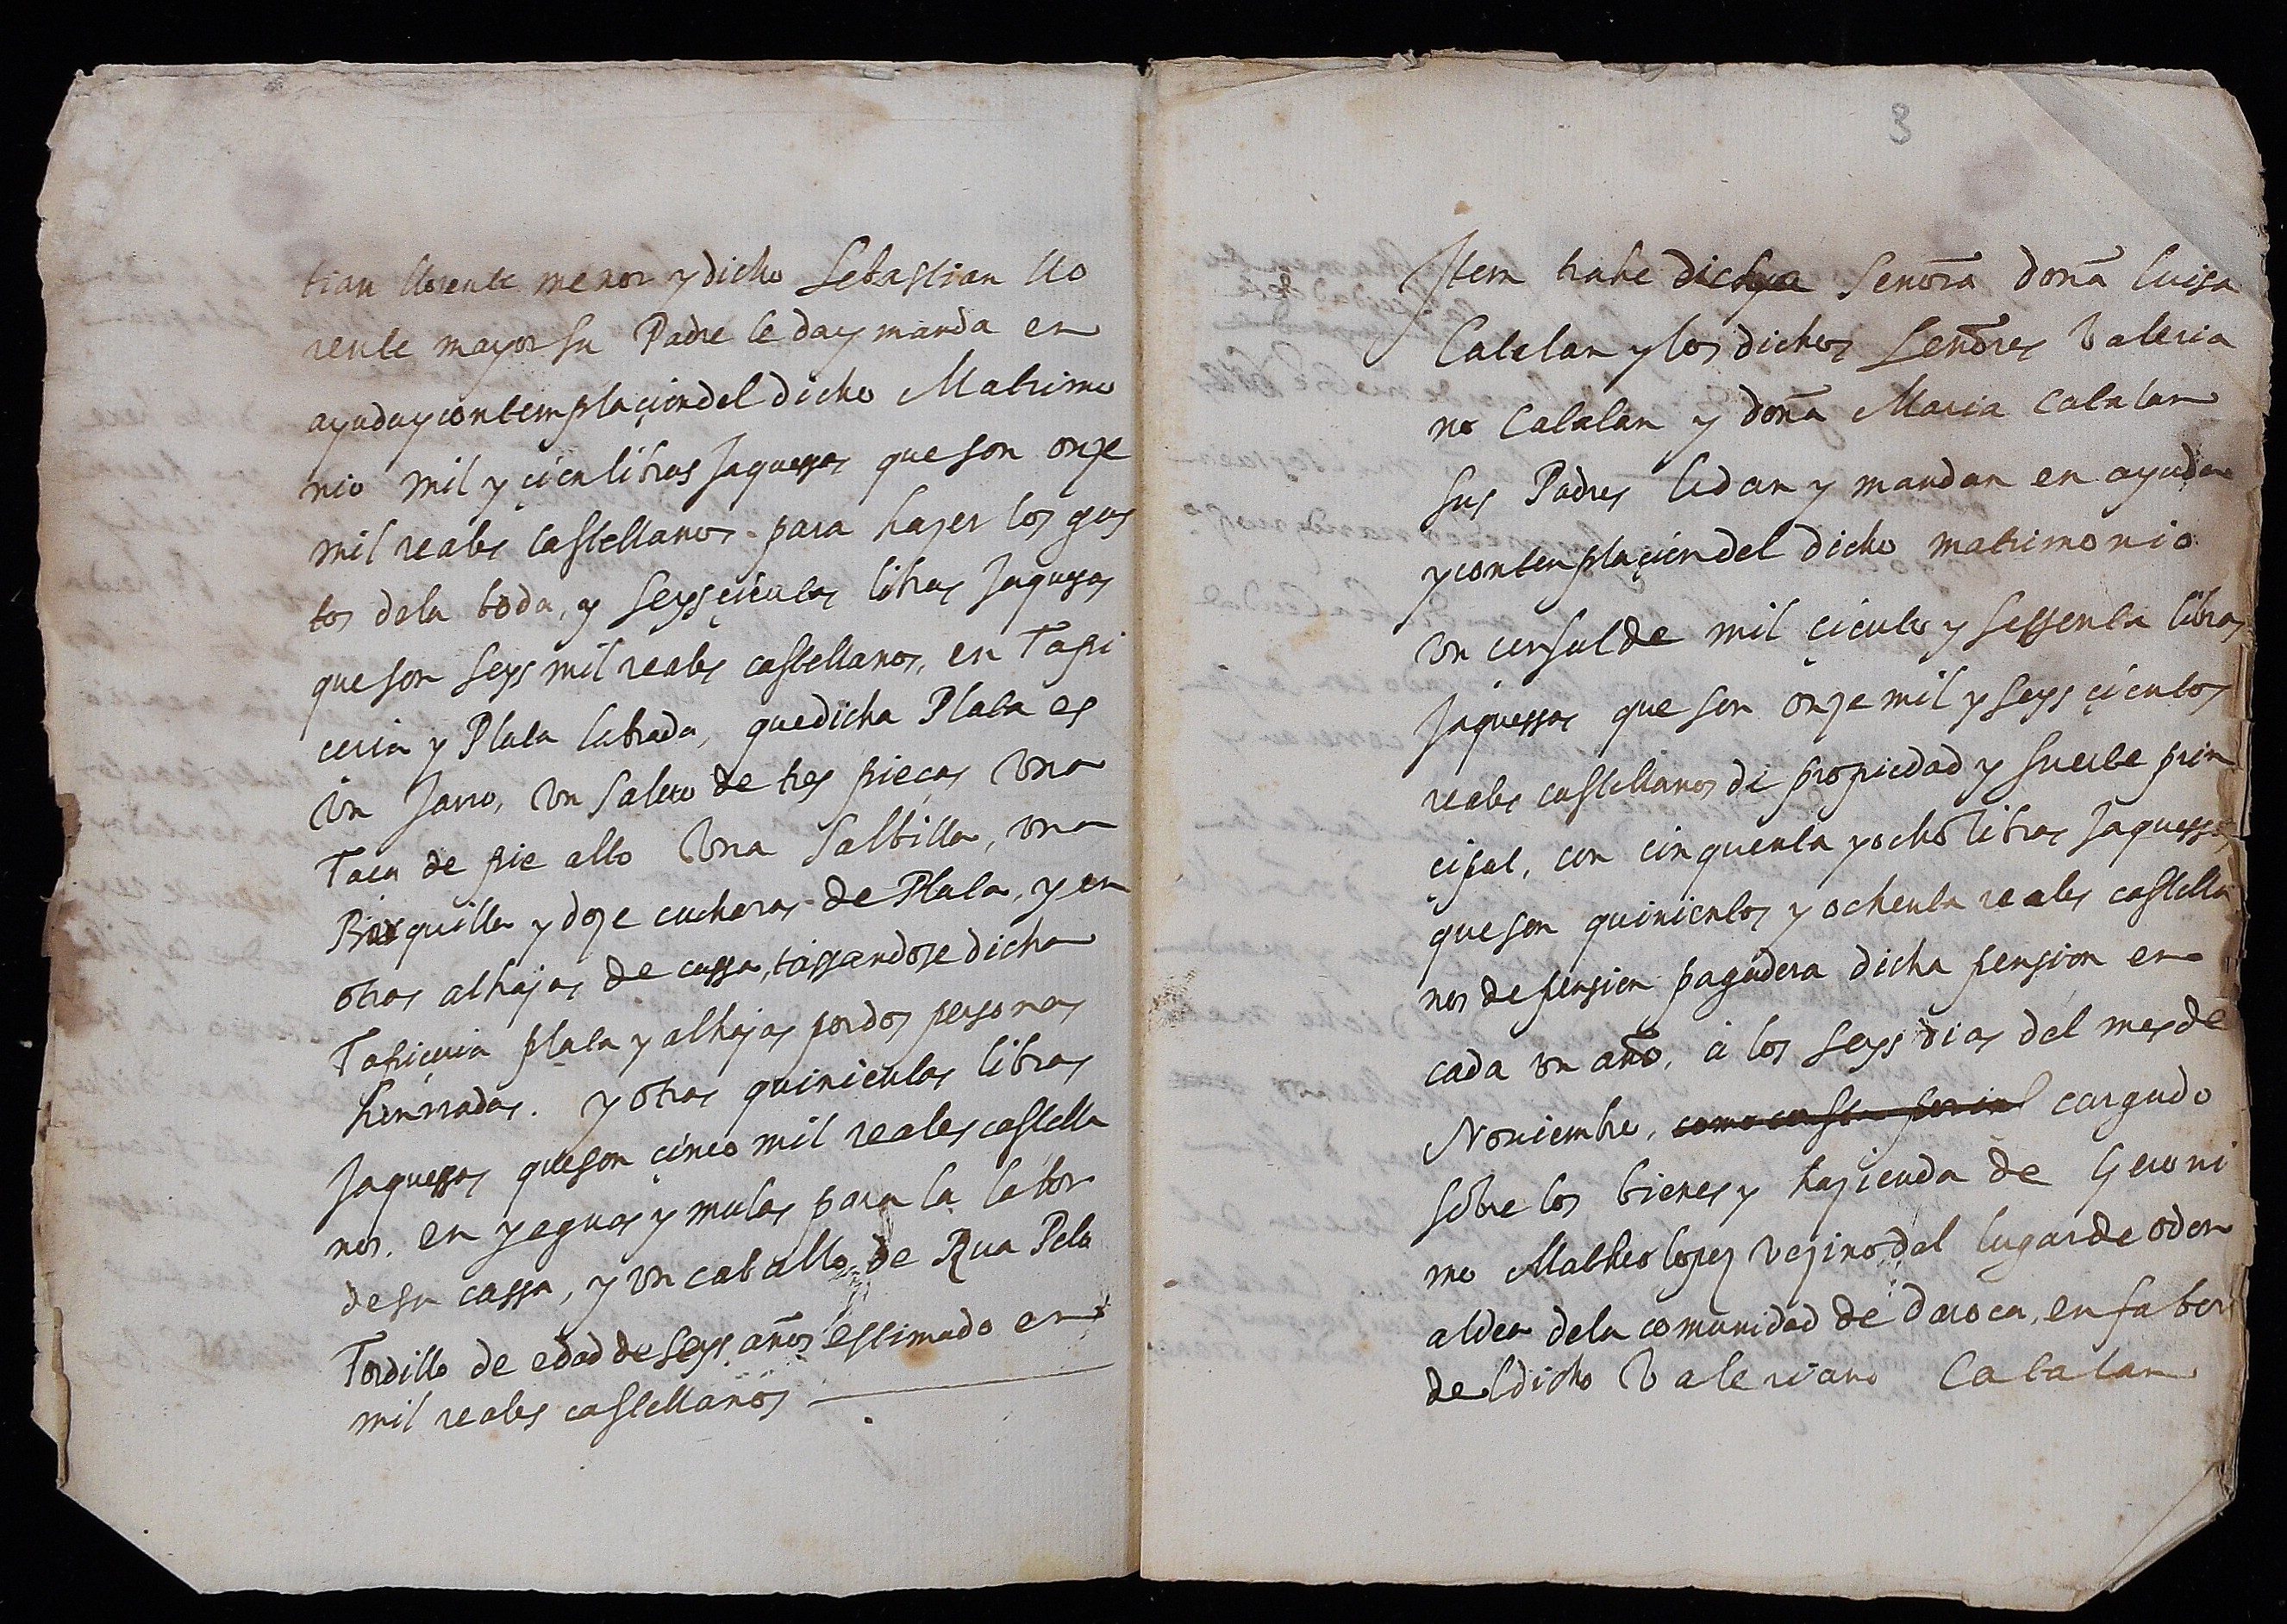 tian llorente menor y dicho Sebastian llo
rente mayor su Padre le da y manda en
ayuda y contemplaçion del dicho Matrimo
nio mil y cien libras Jaquesas que son onze
mil reales castellanos para hazer los gas
tos de la boda, y seys cientas libras Jaquesas
que son seys mil reales castellanos, en Tapi
ceria y Plata labrada, que dicha Plata es
Un Jarro, Un salero de tres pieças Una
Taça de pie alto Una Salbilla, una
quilla y doze cucharas de Plata, y en
otras alhajas de cassa, tassandose dicha
Tapiçeria plata y alhajas por dos personas
honrradas. y otras quinientas libras
Jaquessas que son çinco mil reales castella
nos. en yeguas y mulas para la labor
de su cassa, y un caballo de Rua Pelo
Tordillo de edad de seys años estimado en
mil reales castellanos
3
Item trahe dicha Señora doña luisa
Catalan y los dichos Señores Valeria
no Catalan y doña Maria Catalan
sus Padres le dan y mandan en ayuda
y contenplaçion del dicho matrimonio
Un censal de mil ciento y sessenta libras
Jaquessas que son onze mil y seys çientos
reales castellanos de propiedad y suerte prin
çipal, con cinquenta y ocho libras Jaquessas
que son quinientos y ochenta reales castella
nos de pension pagadera dicha pension en
cada un año, a los seys dias del mes de
Noviembre, como consta por in cargado
sobre los bienes y hazienda de Geroni
mo Matheo lopez vezino del lugar de odon
aldea de la comunidad de daroca, en fabor
del dicho Valeriano Catalan